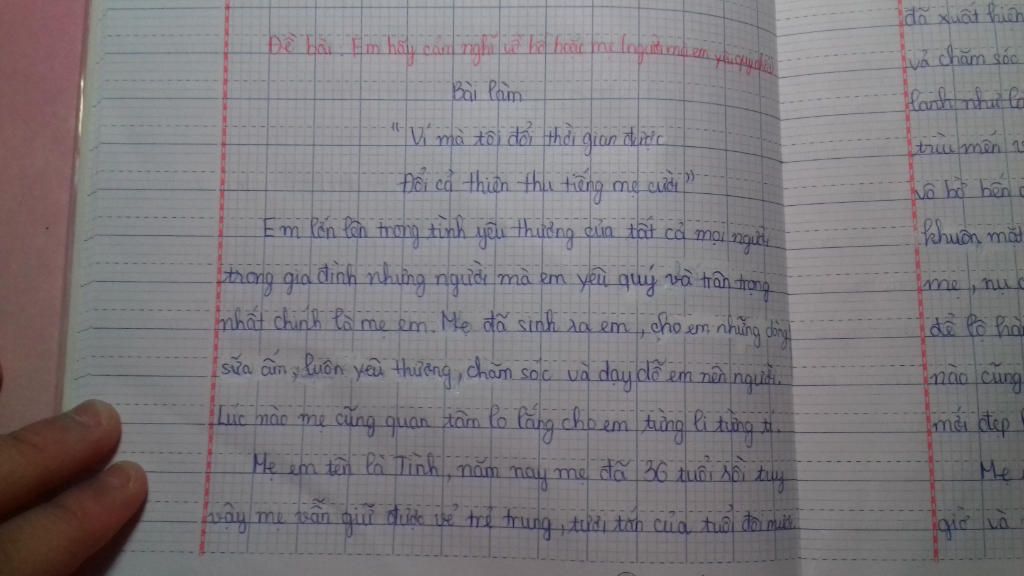 Đề bài. Em hãy cảm nghĩ về bố hoặc mẹ (người mà em yêu quý nhất)
Bài làm
"Ví mà tôi đổi thời gian được
Đổi cả thiên thu tiếng mẹ cười"
Em lớn lên trong tình yêu thương của tất cả mọi người
trong gia đình nhưng người mà em yêu quý và trân trọng
nhất chính là mẹ em. Mẹ đã sinh ra em, cho em những dòng
sữa ấm, luôn yêu thương, chăm sóc và dạy dỗ em nên người.
Lúc nào mẹ cũng quan tâm lo lắng cho em từng li từng tí.
Mẹ em tên là Tình, năm nay mẹ đã 36 tuổi rồi tuy
vậy mẹ vẫn giữ được vẻ trẻ trung, tươi tắn của tuổi đôi mươi.
đã xuất hiện
và chăm sóc
lành như
trìu mến
vô bờ bến
khuôn mặt
mẹ, nụ
để lộ
nào cũng
mới đẹp
Mẹ
giờ và